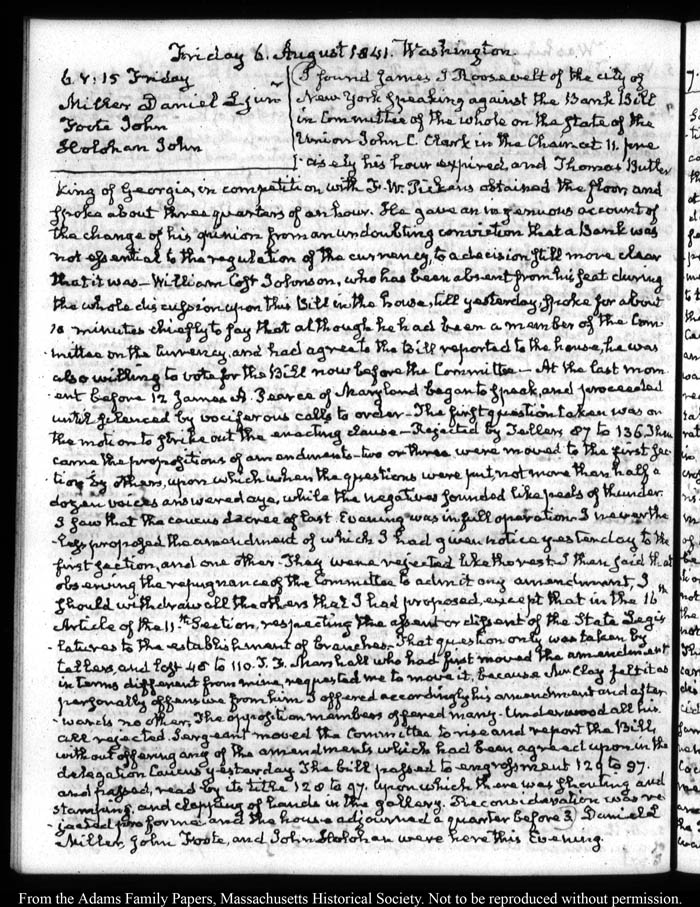 Friday 6. August 1841. Washington.
6. V: 15 Friday
Miller Daniel L. jun.r
Foote John
Holohan John
I found James I Roosevelt of the city of
New York speaking against the Bank Bill
in Committee of the whole on the state of the
Union John C. Clark in the Chair at 11. pre
-cisely his hour expired, and Thomas Butler
King of Georgia, in competition with F. W. Pickens obtained the floor, and
spoke about three quarters of an hour. He gave an ingenuous account of
the change of his opinion from an undoubting conviction that a Bank was
not essential to the regulation of the currency, to a decision still more clear
that it was — William Cost Johnson, who has been absent from his seat during
the whole discussion upon this Bill in the house, till yesterday, spoke for about
10 minutes chiefly to say that although he had been a member of the Com-
mittee on the Currency, and had agree to the Bill reported to the house, he was
also willing to vote for the Bill now before the Committee — At the last mom-
-ent before 12 James A. Pearce of Maryland began to speak, and proceeded
until silenced by vociferous calls to order — The first question taken was on
the motion to strike out the enacting clause — Rejected by Tellers 87 to 136. Then
came the propositions of amendments — two or three were moved to the first sec-
-tion by others, upon which when the questions were put, not more than half a
dozen voices answered aye, while the negatives sounded like peals of thunder.
I saw that the caucus decree of last Evening was in full operation. I neverthe
-less proposed the amendment of which I had given notice yesterday to the
first section, and one other. They were rejected like the rest. I then said that
observing the repugnance of the Committee to admit any amendment, I
should withdraw all the others that I had proposed, except that in the 16th
Article of the 11.th Section, respecting the assent or dissent of the State Legis
-latures to the establishment of branches. That question only was taken by
tellers, and lost 48 to 110. T. F. Marshall who had first moved the amendment
in terms different from mine, requested me to move it, because Mr Clay felt it as
personally offensive from him I offered accordingly his amendment and after
-wards no other, The opposition members offered many. Underwood all his.
all rejected Sergeant moved the Committee to rise and report the Bill,
without offering any of the amendments which had been agreed upon in the
delegation Caucus yesterday The bill passed to engrossment 129 to 97.
and passed, read by its title 128 to 97. upon which there was shouting and
stamping, and clapping of hands in the gallery. Reconsideration was re
-jected pro forma and the house adjourned a quarter before 3. Daniel L
Miller, John Foote, and John Holohan were here this Evening.
From the Adams Family Papers, Massachusetts Historical Society. Not to be reproduced without permission.